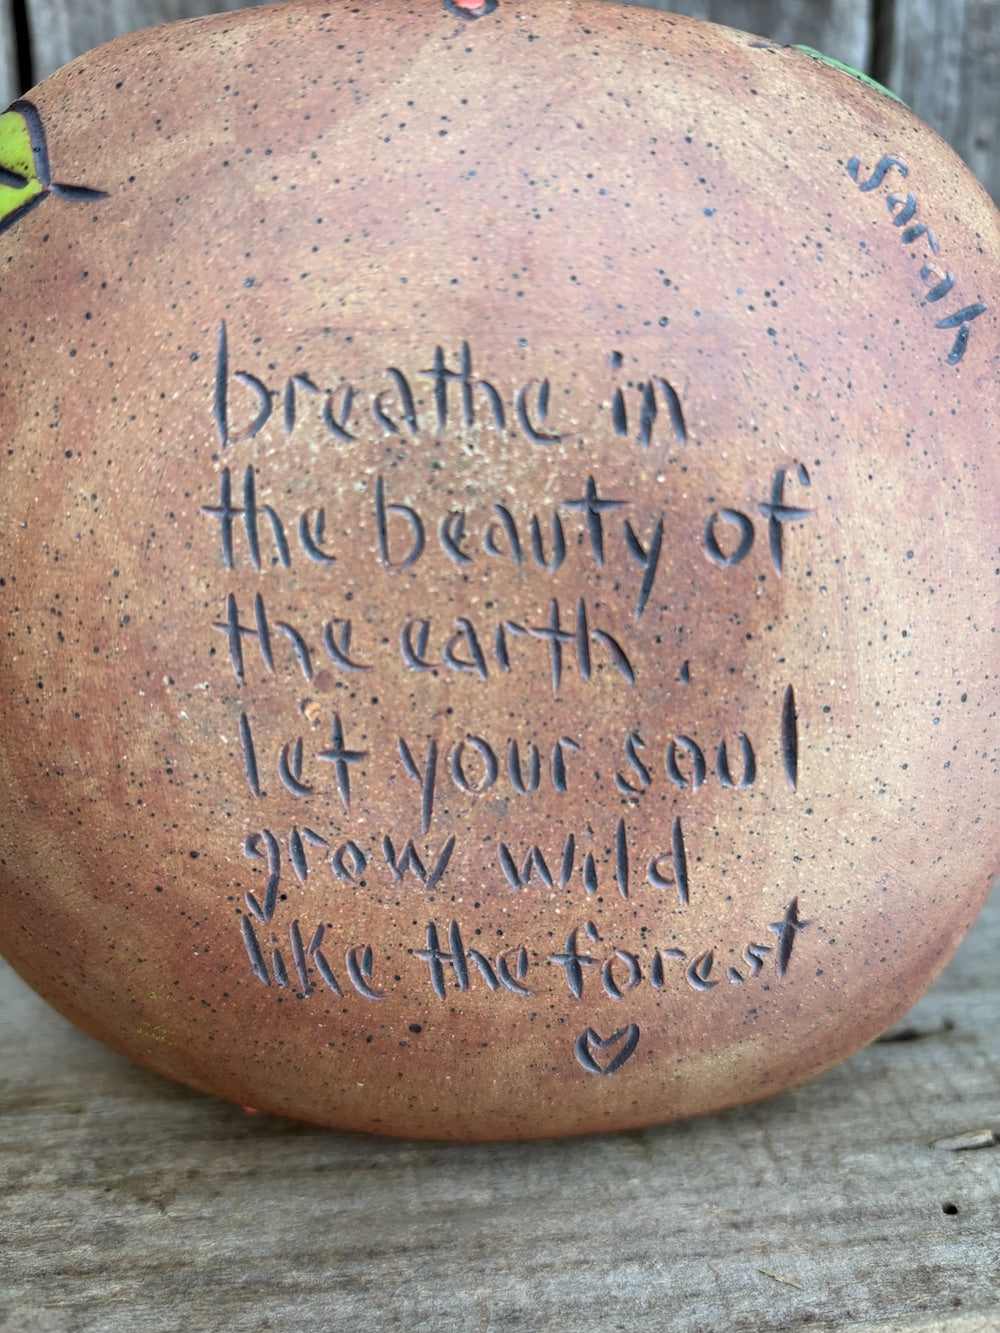 sarah
breathe in
the beauty of
the earth.
let your soul
grow wild
like the forest